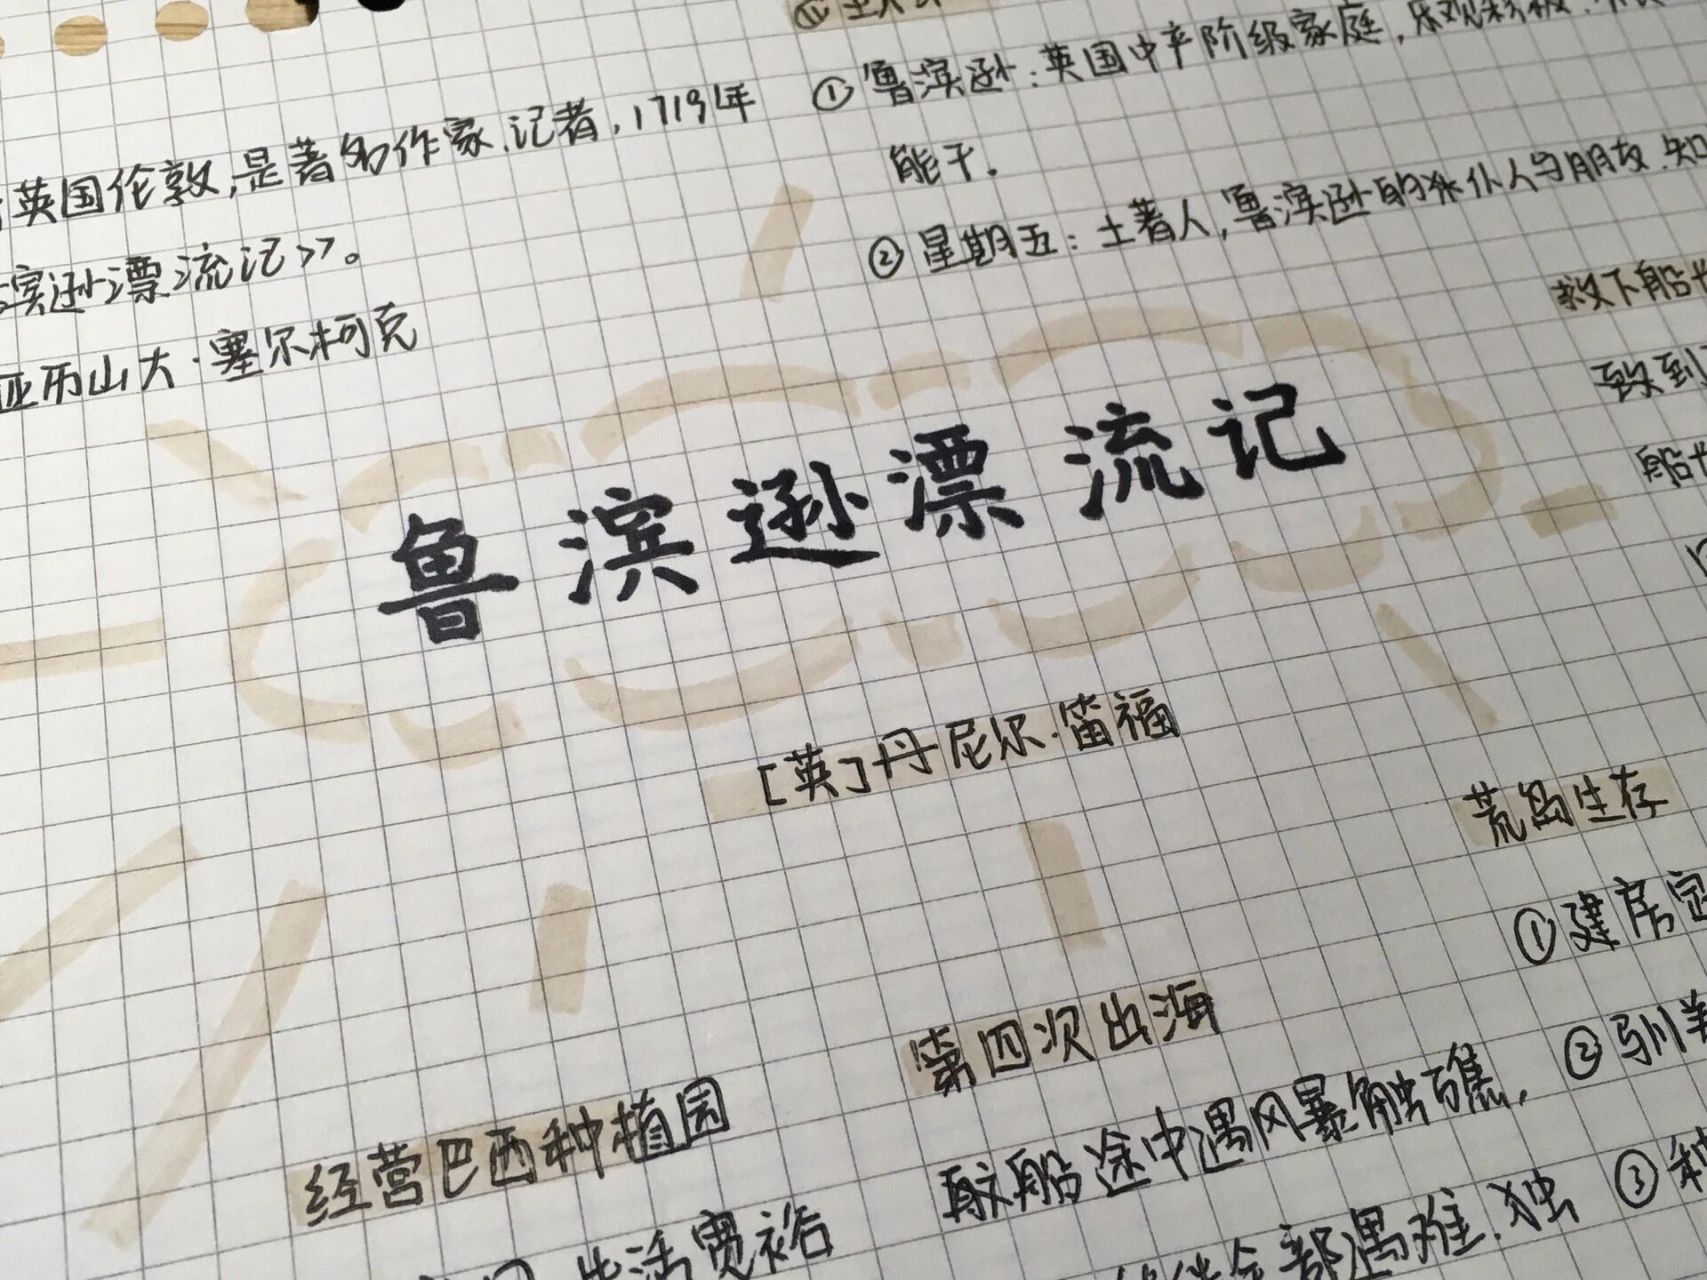 英国伦敦,是著名作家.记者,1719年
滨逊漂流记》。
亚历山大·塞尔柯克
①鲁滨逊:英国中产阶级家庭,乐观积极
能干.
②星期五:土著人,鲁滨逊的
仆人与朋友.知
救下船
到
船
鲁滨逊漂流记
[英]丹尼尔·笛福
荒岛生存
①建房
②驯羊
③
第四次出海
乘船途中遇风暴触礁,
全部遇难.独
经营巴西种植园
生活宽裕